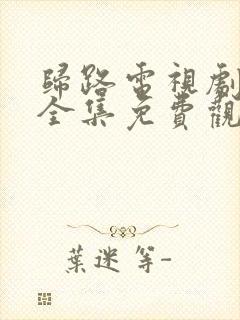 歸路電視劇
全集免費觀
葉迷 等-